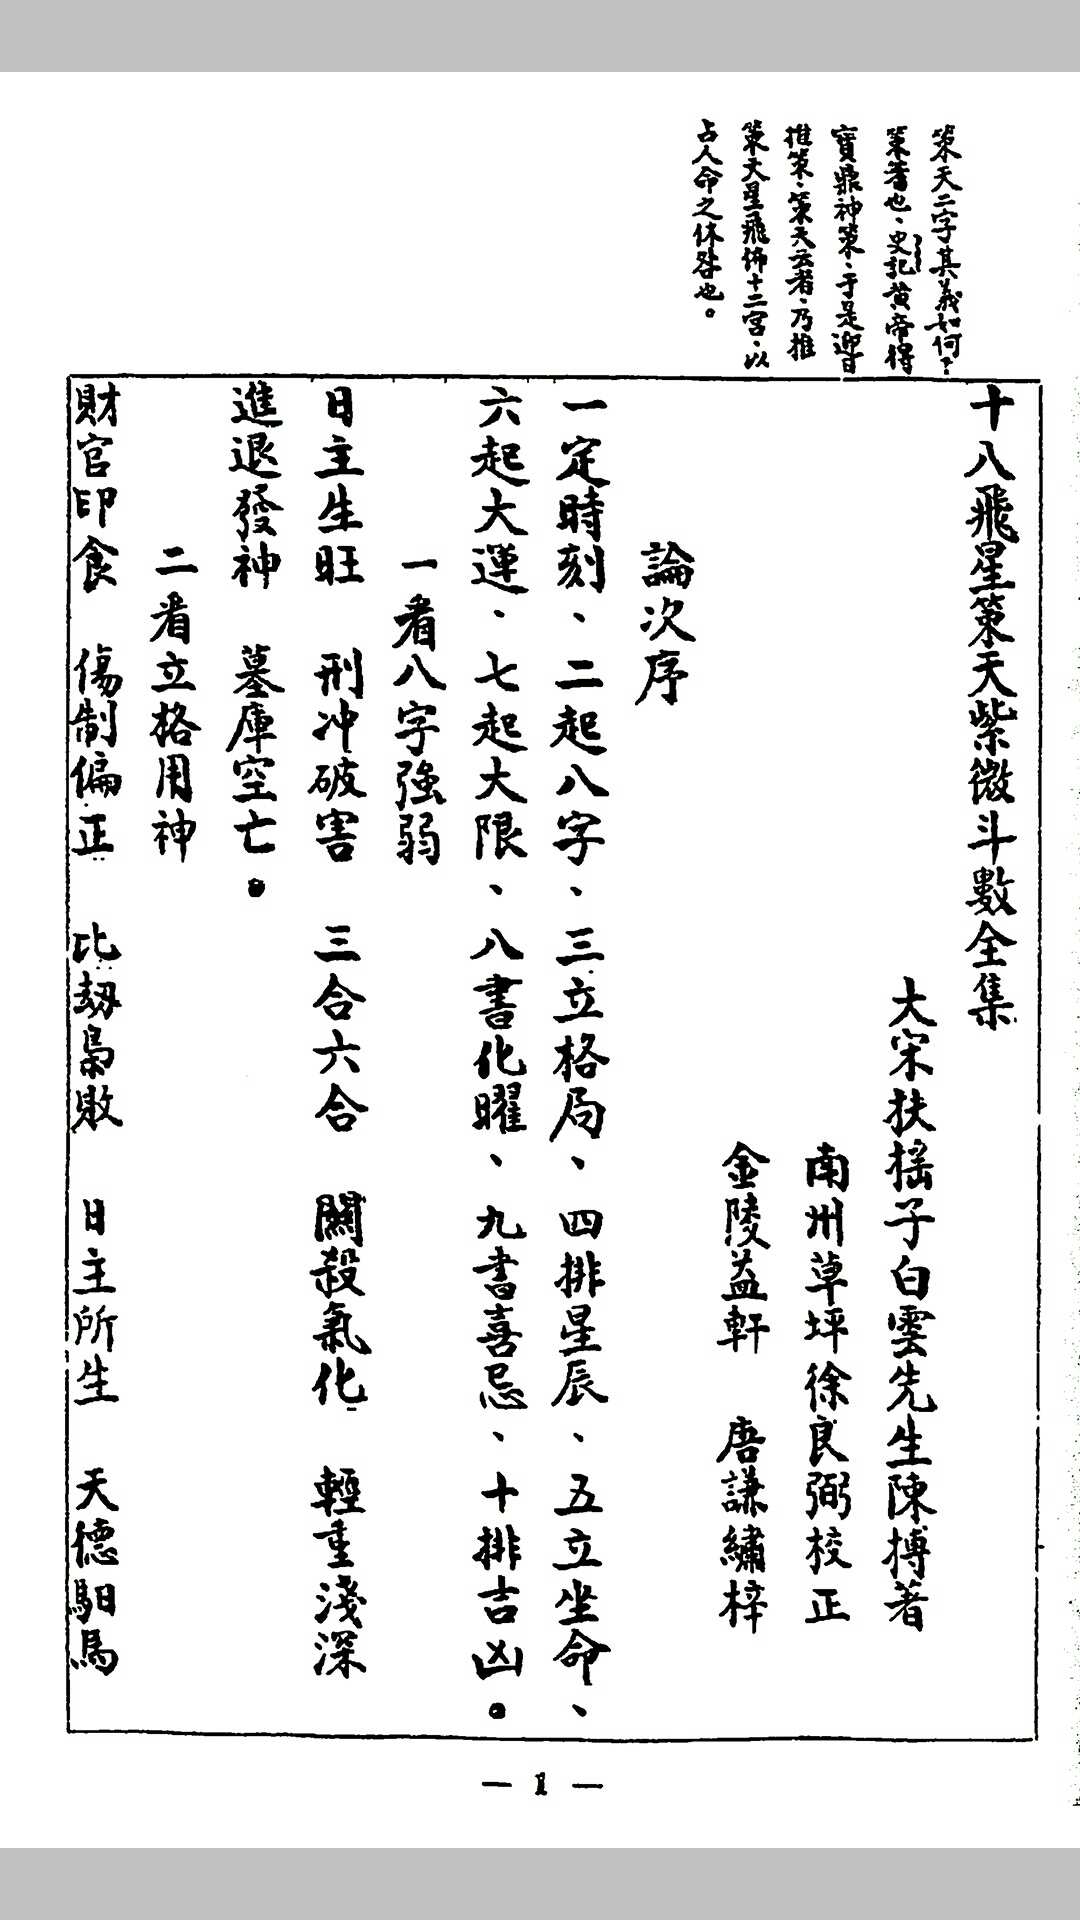 策天二字其義如何?
策蓍也、史記黃帝得
寶鼎神策、于是迎日
推策、策天云者、乃推
策天星飛佈十二宮、以
占人命之休咎也。
十八飛星策天紫微斗數全集
大宋扶搖子白雲先生陳摶著
南州草坪徐良弼校正
金陵益軒　唐謙繡梓
論次序
一定時刻、二起八字、三立格局、四排星辰、五立坐命、
六起大運、七起大限、八書化曜、九書喜忌、十排吉凶。
一看八字強弱
日主生旺　刑冲破害　三合六合　關殺氣化　輕重淺深
進退發神　墓庫空亡。
二看立格用神
財官印食　傷制偏正　比刼梟敗　日主所生　天德馹馬
— 1 —